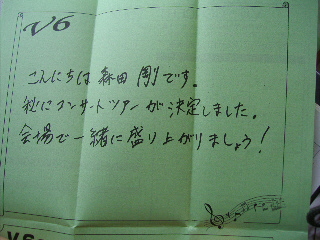 V6
こんにちは森田 剛です。
秋にコンサートツアーが決定しました。
会場で一緒に盛り上がりましょう!
V6